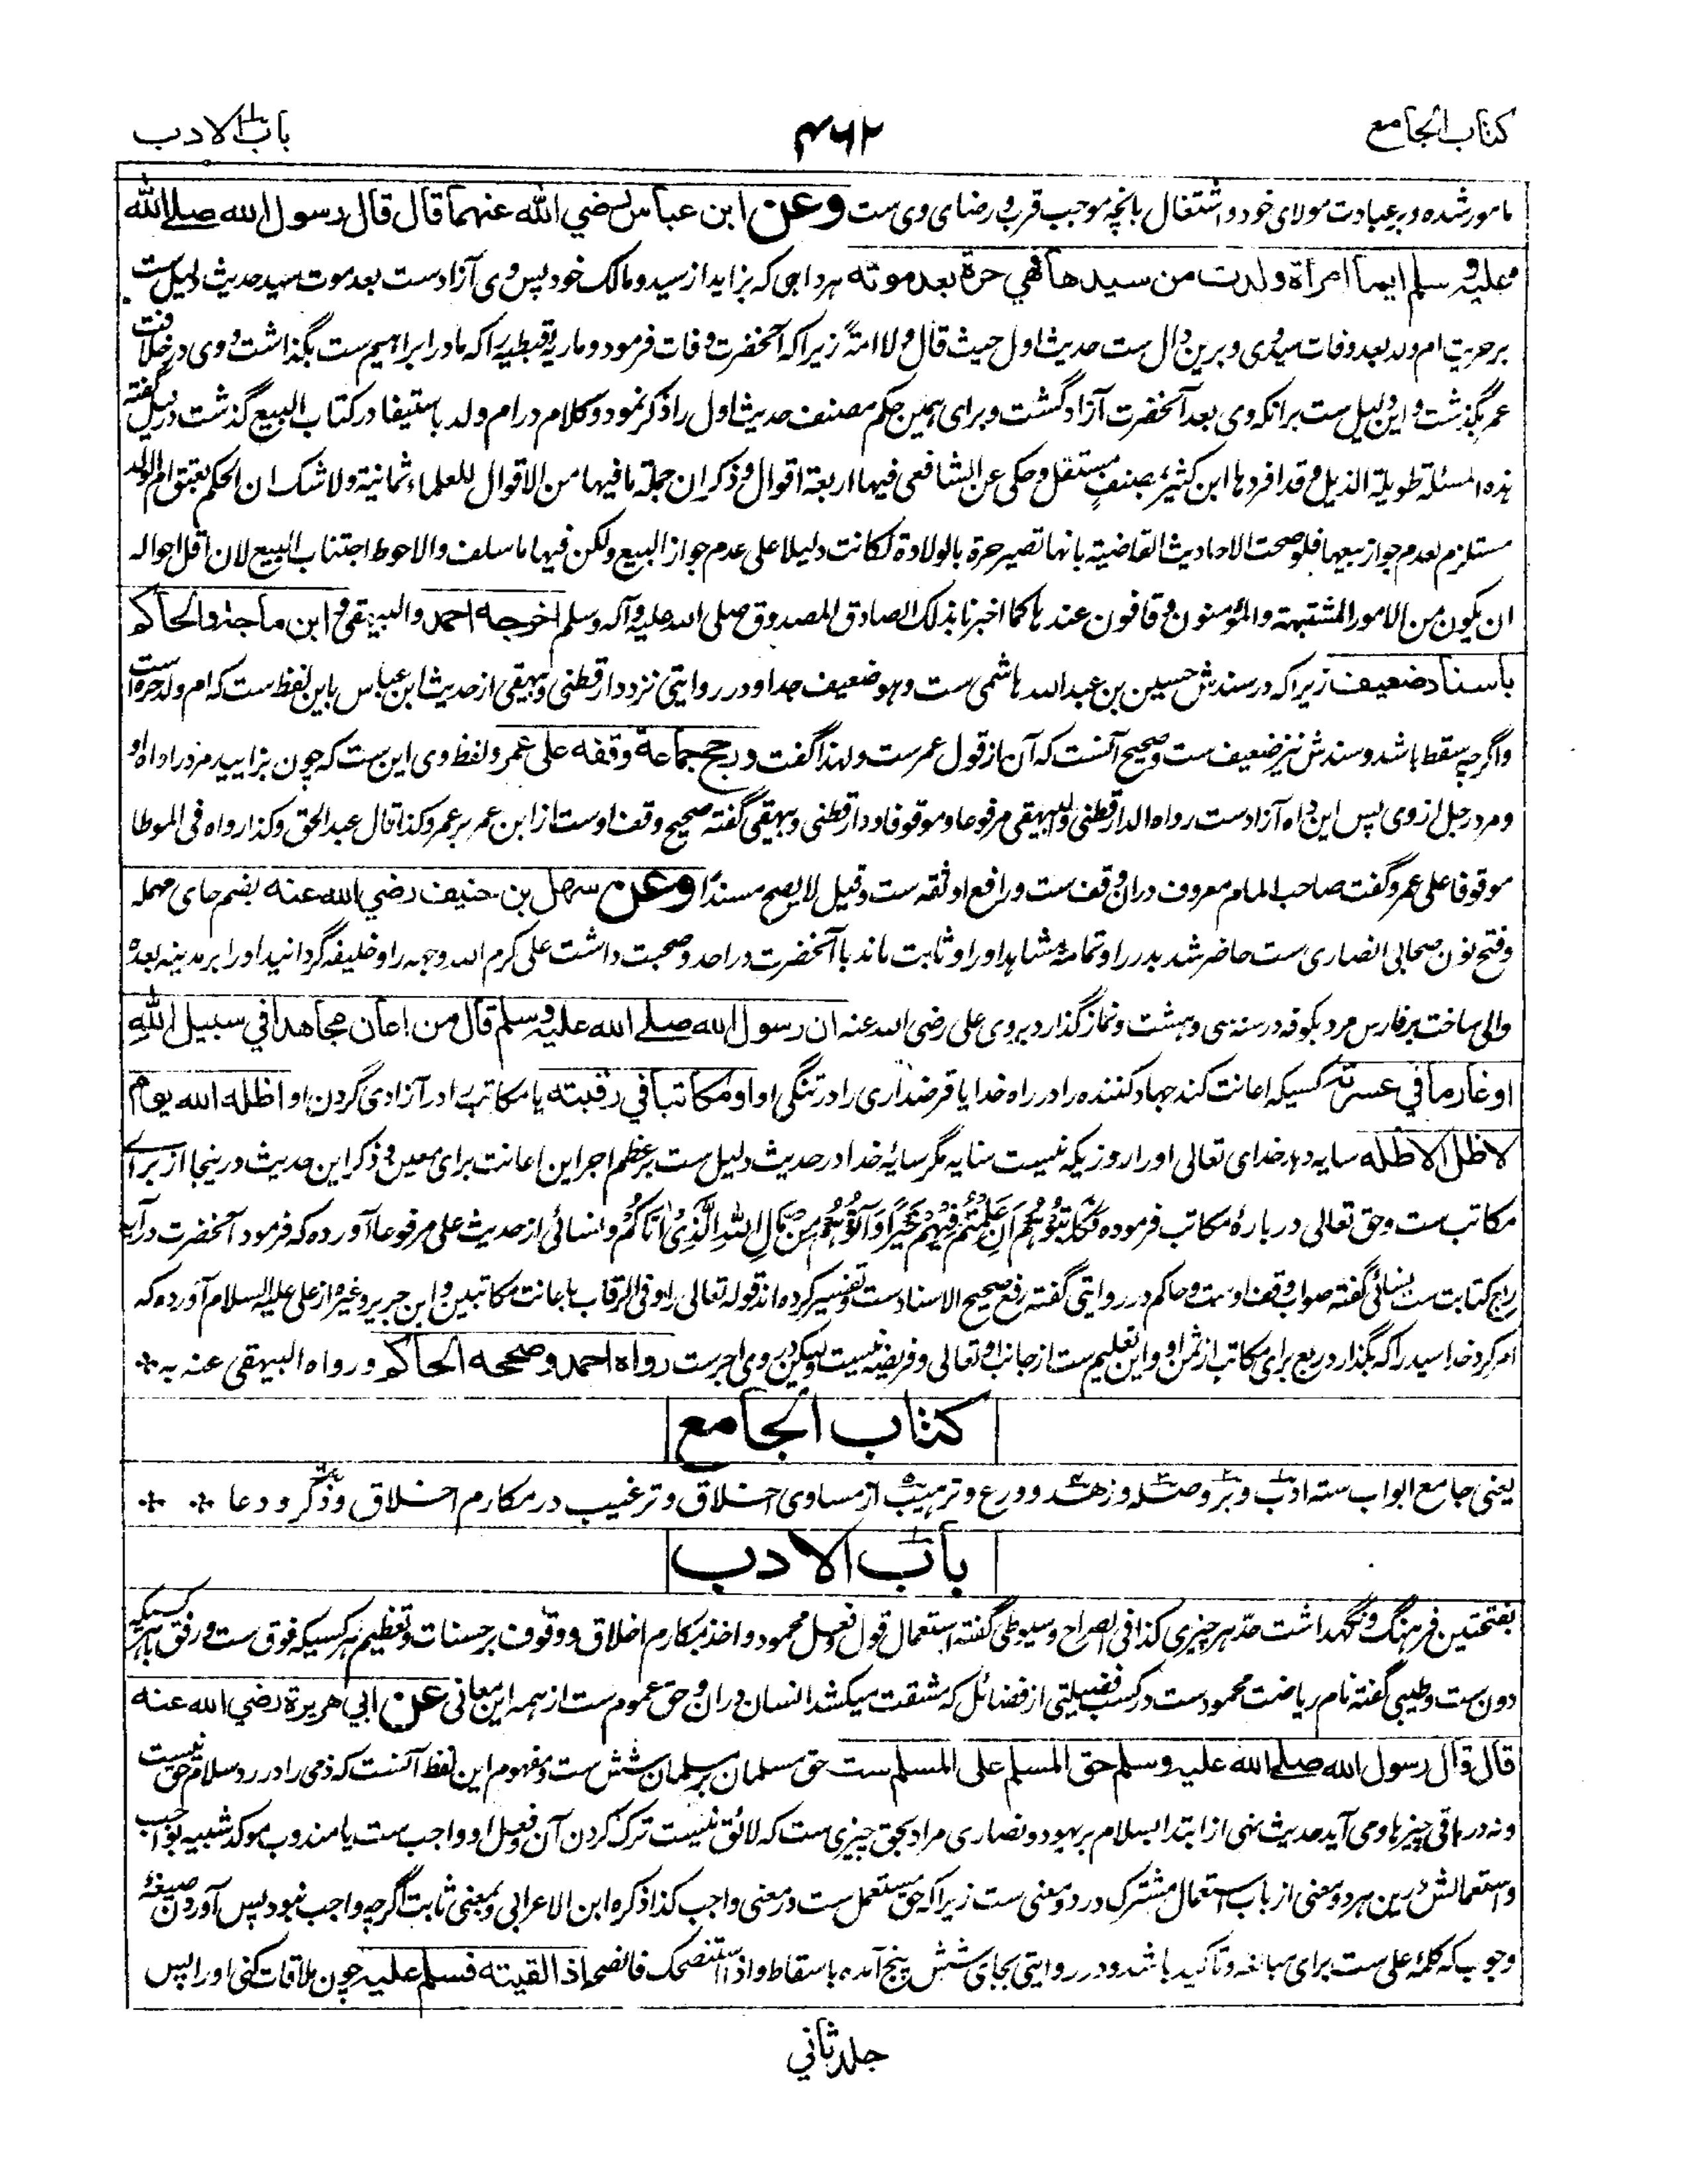 کتاب الجامع
۴۶۲
باب الادب
مامور شده و بر عبادت مولای خود و اشتغال بانچه موجب قرب و رضای وی ست وعن ابن عباس رضي الله عنهما قال قال رسول الله صلے الله
علیه و سلم ایما امرأة ولدت من سیدها فهي حرة بعد موته هر داهی که بزاید از سید و مالک خود پس وی آزادست بعد موت سید حدیث دلیل ست
بر حریت ام ولد بعد وفات سید وی و برین دال ست حدیث اول حیث قال ولا امة زیرا که آنحضرت وفات فرمود و ماریه قبطیه را که مادر ابراهیم ست بگذاشت و وی در خلافت
عمر بگذشت و این دلیل ست برانکه وی بعد آنحضرت آزاد گشت و برای همین حکم مصنف حدیث اول را ذکر نمود و کلام در ام ولد باستیفا در کتاب البیع گذشت در نیل گفته
هذه المسئلة طویلة الذیل وقد افردها ابن کثیر بصنف مستقل وحکی عن الشافعی فیها اربعة اقوال وذکر ان جملة ما فیها من الاقوال للعلماء ثمانیة ولا شک ان الحکم بعتق ام الولد
مستلزم لعدم جواز بیعها فلو صحت الاحادیث القاضیة بانها تصیر حرة بالولادة لکانت دلیلا علی عدم جواز البیع ولکن فیها ما سلف والاحوط اجتناب البیع لان اقل احواله
ان یکون من الامور المشتبهة والمؤمنون وقافون عندها کما اخبرنا بذلک الصادق المصدوق صلی الله علیه وآله وسلم اخرجه احمد والبیهقی و ابن ماجة والحاکم
باسناد ضعیف زیرا که در سندش حسین بن عبدالله هاشمی ست وهو ضعیف جدا و در روایتی نزد دارقطنی و بیهقی از حدیث ابن عباس باین لفظ ست که ام ولد حره است
واگرچه سقط باشد و سندش نیز ضعیف ست و صحیح آنست که آن از قول عمر ست ولهذا گفت ورجح جماعة وقفه علی عمر ولفظ وی این ست که چون بزایید مرد را داه او
و مرد رجل از وی پس این داه آزادست رواه الدارقطنی والبیهقی مرفوعا و موقوفا و دارقطنی و بیهقی گفته صحیح وقف اوست از ابن عمر بر عمر وکذا قال عبد الحق وکذا رواه فی الموطا
موقوفا علی عمر و گفت صاحب المام معروف دران وقف ست و رافع او ثقه ست و قیل لا یصح مسندا وعن سهل بن حنیف رضي الله عنه بضم حای مهمله
وفتح نون صحابی انصاری ست حاضر شد بدر را و تمامه مشاهد او را و ثابت ماند با آنحضرت در احد و صحبت داشت علی کرم الله وجهه را و خلیفه گردانید او را بر مدینه بعده
والی ساخت بر فارس مرد بکوفه در سنه سی و هشت و نماز گذارد بر وی علی رضی الله عنه ان رسول الله صلے الله علیه وسلم قال من اعان مجاهدا في سبیل الله
او غارما في عسرته کسیکه اعانت کند جهاد کننده را در راه خدا یا قرضداری را در تنگی او او مکاتبا في رقبته یا مکاتبی را در آزادی گردن او اظله الله یوم
لا ظل الا ظله سایه دهد خدای تعالی او را روزیکه نیست سایه مگر سایه خدا در حدیث دلیل ست بر عظم اجر این اعانت برای معین و ذکر این حدیث درینجا از برای
مکاتب ست و حق تعالی درباره مکاتب فرموده فکاتبوهم ان علمتم فیهم خیرا وآتوهم من مال الله الذی اتاکم و نسائی از حدیث علی مرفوعا آورده که فرمود آنحضرت درآیه
ربع کتابت ست نسائی گفته صواب وقف اوست و حاکم در روایتی گفته رفع صحیح الاسنادست و تفسیر کرده اند قوله تعالی را وفی الرقاب باعانت مکاتبین و ابن جریر و غیره از علی علیه السلام آورده که
امر کرد خدا سید را که بگذارد ربع برای مکاتب از ثمن او و این تعلیم ست از جانب او تعالی و فریضه نیست ولیکن در وی اجرست رواه احمد وصححه الحاکم ورواه البیهقی عنه به *
کتاب الجامع
یعنی جامع ابواب سته ادب و بر و صله و زهد و ورع و ترهیب از مساوی اخلاق و ترغیب در مکارم اخلاق و ذکر و دعا * *
باب الادب
بفتحتین فرهنگ و نگهداشت حد هر چیزی کذا فی الصراح و سیوطی گفته استعمال قول و فعل محمود و اخذ بمکارم اخلاق و وقوف بر حسنات و تعظیم هر کسیکه فوق ست و رفق با هر کسیکه
دون ست و طیبی گفته نام ریاضت محمودست در کسب فضیلتی از فضائل که مشقت میکشد انسان دران و حق عموم ست از همه این معانی عن ابي هریرة رضي الله عنه
قال قال رسول الله صلے الله علیه وسلم حق المسلم علی المسلم ست حق مسلمان بر مسلمان شش ست و مفهوم این لفظ آنست که ذمی را در رد سلام حق نیست
و نه در باقی چیزها و می آید حدیث نهی از ابتدا بسلام بر یهود و نصاری مراد بحق چیزی ست که لائق نیست ترک کردن آن و فعل او واجب ست یا مندوب موکد شبیه بواجب
و استعمالش درین هر دو معنی از باب استعمال مشترک در دو معنی ست زیرا که حق مستعمل ست در معنی واجب کذا ذکره ابن الاعرابی و بمعنی ثابت اگرچه واجب نبود پس آوردن صیغهٔ
وجوب که کلمهٔ علی ست برای مبالغه و تاکید باشد و در روایتی بجای شش پنج آمده باسقاط واذا استنصحک فانصح اذا لقیته فسلم علیه چون ملاقات کنی او را پس
جلد ثاني